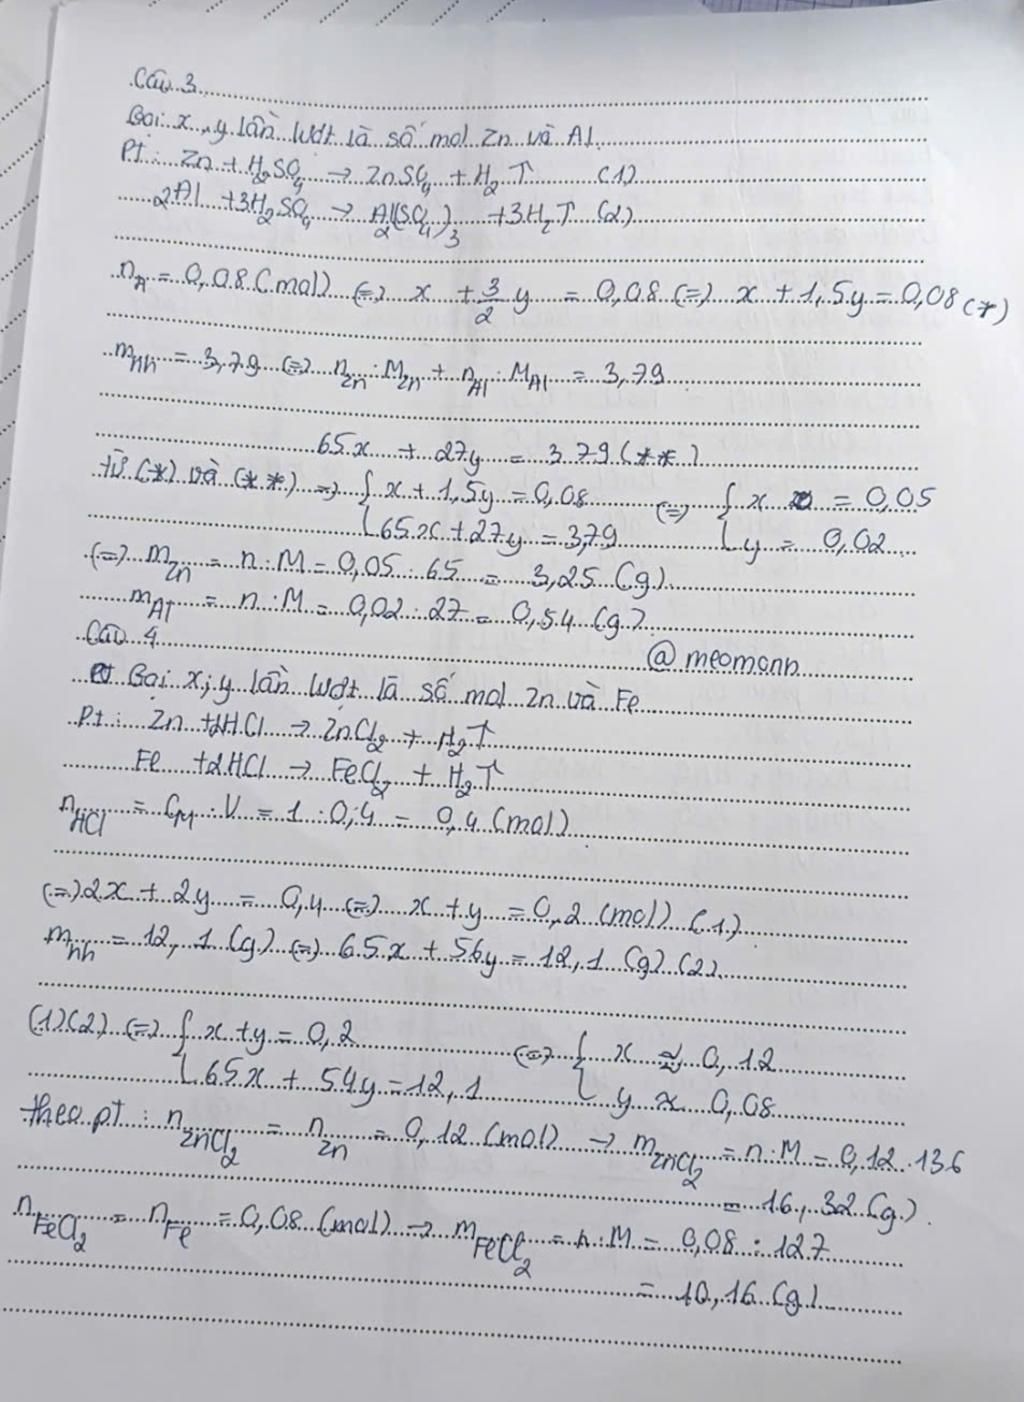 Câu 3
Gọi x, y lần lượt là số mol Zn và Al
Pt: Zn + H2SO4 → ZnSO4 + H2↑ (1)
2Al + 3H2SO4 → Al2(SO4)3 + 3H2↑ (2)
nA = 0,08 (mol) (=) x + 3/2 y = 0,08 (=) x + 1,5y = 0,08 (*)
mhh = 3,79 (=) nZn . MZn + nAl . MAl = 3,79
65x + 27y = 3,79 (**)
từ (*) và (**) =) { x + 1,5y = 0,08 (=) { x = 0,05
65x + 27y = 3,79 y = 0,02
(=) mZn = n . M = 0,05 . 65 = 3,25 (g)
mAl = n . M = 0,02 . 27 = 0,54 (g)
Câu 4
@meomonn
Gọi x; y lần lượt là số mol Zn và Fe
Pt: Zn + 2HCl → ZnCl2 + H2↑
Fe + 2HCl → FeCl2 + H2↑
nHCl = CM . V = 1 . 0,4 = 0,4 (mol)
(=) 2x + 2y = 0,4 (=) x + y = 0,2 (mol) (1)
mhh = 12,1 (g) (=) 65x + 56y = 12,1 (g) (2)
(1)(2) (=) { x + y = 0,2 (=) { x ≈ 0,12
65x + 54y = 12,1 y ≈ 0,08
theo pt: nZnCl2 = nZn = 0,12 (mol) → mZnCl2 = n . M = 0,12 . 136
= 16,32 (g).
nFeCl2 = nFe = 0,08 (mol) → mFeCl2 = n . M = 0,08 . 127
= 10,16 (g)